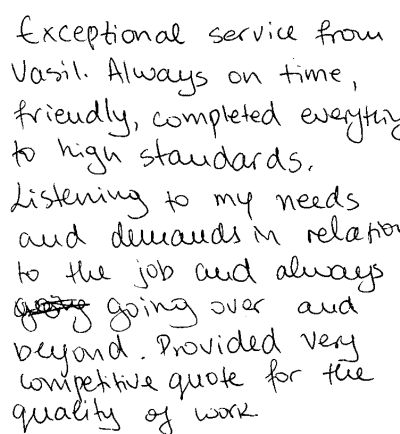 Exceptional service from
Vasil. Always on time,
friendly, completed everything
to high standards.
Listening to my needs
and demands in relation
to the job and always
going over and
beyond. Provided very
competitive quote for the
quality of work